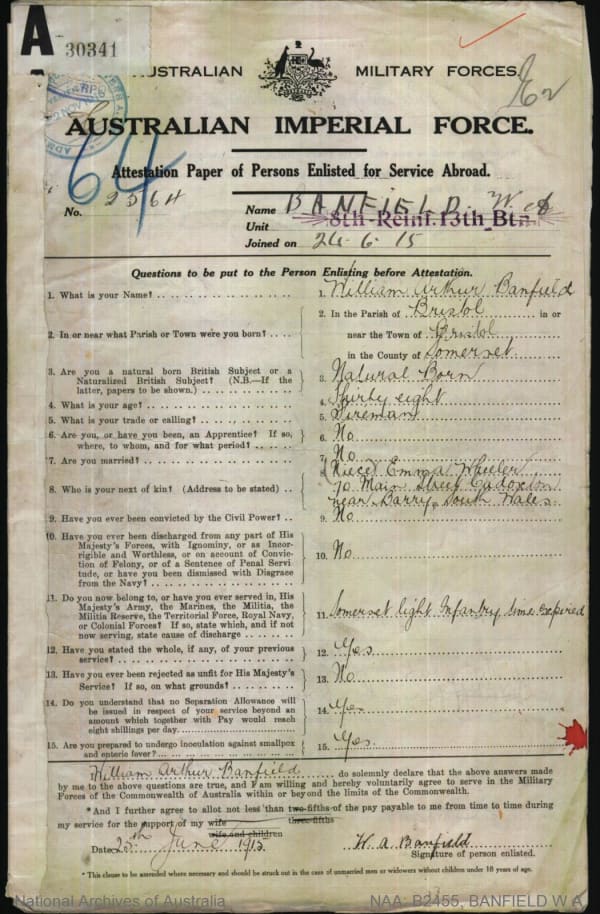 A 30341
AUSTRALIAN MILITARY FORCES.
AUSTRALIAN IMPERIAL FORCE.
64
Attestation Paper of Persons Enlisted for Service Abroad.
No. 2564 Name BANFIELD. W. A
Unit 8th Reinf. 13th Btn.
Joined on 24.6.15
Questions to be put to the Person Enlisting before Attestation.
1. What is your Name? 1. William Arthur Banfield
2. In or near what Parish or Town were you born? 2. In the Parish of Bristol in or
near the Town of Bristol
in the County of Somerset
3. Are you a natural born British Subject or a
Naturalized British Subject? (N.B.—If the
latter, papers to be shown.) 3. Natural Born
4. What is your age? 4. Thirty eight
5. What is your trade or calling? 5. Fireman
6. Are you, or have you been, an Apprentice? If so,
where, to whom, and for what period? 6. No
7. Are you married? 7. No
8. Who is your next of kin? (Address to be stated) 8. (Niece) Emma Wheeler
70 Main Street Cadoxton
near Barry South Wales
9. Have you ever been convicted by the Civil Power? 9. No
10. Have you ever been discharged from any part of His
Majesty's Forces, with Ignominy, or as Incor-
rigible and Worthless, or on account of Convic-
tion of Felony, or of a Sentence of Penal Servi-
tude, or have you been dismissed with Disgrace
from the Navy? 10. No
11. Do you now belong to, or have you ever served in, His
Majesty's Army, the Marines, the Militia, the
Militia Reserve, the Territorial Force, Royal Navy,
or Colonial Forces? If so, state which, and if not
now serving, state cause of discharge 11. Somerset light Infantry time expired
12. Have you stated the whole, if any, of your previous
service? 12. Yes
13. Have you ever been rejected as unfit for His Majesty's
Service? If so, on what grounds? 13. No
14. Do you understand that no Separation Allowance will
be issued in respect of your service beyond an
amount which together with Pay would reach
eight shillings per day. 14. Yes
15. Are you prepared to undergo inoculation against smallpox
and enteric fever? 15. Yes
I William Arthur Banfield do solemnly declare that the above answers made
by me to the above questions are true, and I am willing and hereby voluntarily agree to serve in the Military
Forces of the Commonwealth of Australia within or beyond the limits of the Commonwealth.
*And I further agree to allot not less than two-fifths of the pay payable to me from time to time during
three-fifths
my service for the support of my wife
wife and children
Date 25th June 1915 W. A Banfield
Signature of person enlisted.
* This clause to be amended where necessary and should be struck out in the case of unmarried men or widowers without children under 18 years of age.
National Archives of Australia NAA: B2455, BANFIELD W A